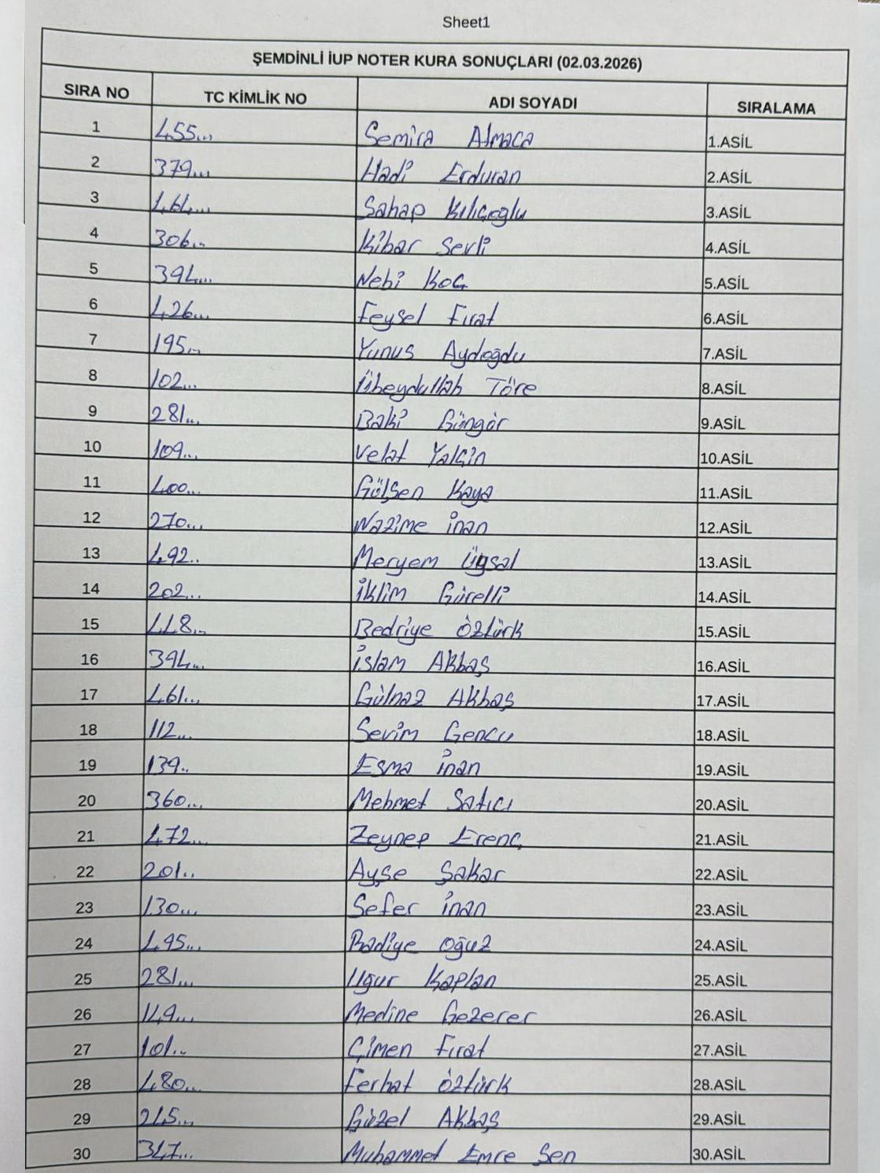 Sheet1
ŞEMDİNLİ İUP NOTER KURA SONUÇLARI (02.03.2026)
SIRA NO TC KİMLİK NO ADI SOYADI SIRALAMA
1 455... Semira Atmaca 1.ASİL
2 379... Hadi Erduran 2.ASİL
3 461... Sahap Kılıçoğlu 3.ASİL
4 306... Kibar Sevli 4.ASİL
5 394... Nebi Koç 5.ASİL
6 426... Feysel Fırat 6.ASİL
7 195... Yunus Aydoğdu 7.ASİL
8 102... Übeydullah Töre 8.ASİL
9 281... Baki Güngör 9.ASİL
10 109... Velat Yalçin 10.ASİL
11 400... Gülşen Kaya 11.ASİL
12 270... Nazime İnan 12.ASİL
13 492.. Meryem 13.ASİL
14 202... İklim Gürelli 14.ASİL
15 448... Bedriye Öztürk 15.ASİL
16 394... İslam Akbaş 16.ASİL
17 461... Gülnaz Akbaş 17.ASİL
18 112... Sevim Gencu 18.ASİL
19 139.. Esma İnan 19.ASİL
20 360... Mehmet Satıcı 20.ASİL
21 472... Zeynep Erenç 21.ASİL
22 201.. Ayşe Şakar 22.ASİL
23 130... Sefer İnan 23.ASİL
24 495... Badiye Oğuz 24.ASİL
25 281... Uğur Kaplan 25.ASİL
26 149... Medine Gezerer 26.ASİL
27 101.. Çimen Fırat 27.ASİL
28 480... Ferhat Öztürk 28.ASİL
29 215... Güzel Akbaş 29.ASİL
30 347... Muhammet Emre Şen 30.ASİL